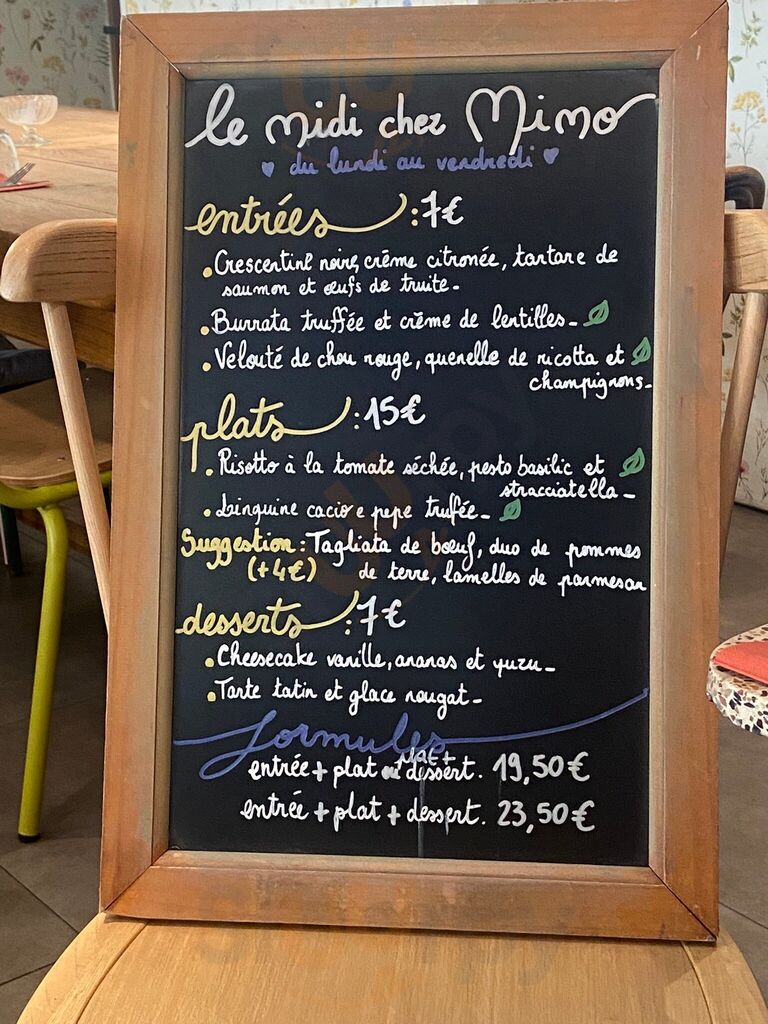 le midi chez Mimo
du lundi au vendredi
entrées : 7€
• Crescentine noire, crème citronée, tartare de
saumon et œufs de truite.
• Burrata truffée et crème de lentilles.
• Velouté de chou rouge, quenelle de ricotta et
champignons.
plats : 15€
• Risotto à la tomate séchée, pesto basilic et
stracciatella.
• Linguine cacio e pepe truffée.
Suggestion : Tagliata de bœuf, duo de pommes
(+4€) de terre, lamelles de parmesan
desserts : 7€
• Cheesecake vanille, ananas et yuzu.
• Tarte tatin et glace nougat.
formules
plat +
entrée + plat ou dessert. 19,50€
entrée + plat + dessert. 23,50€